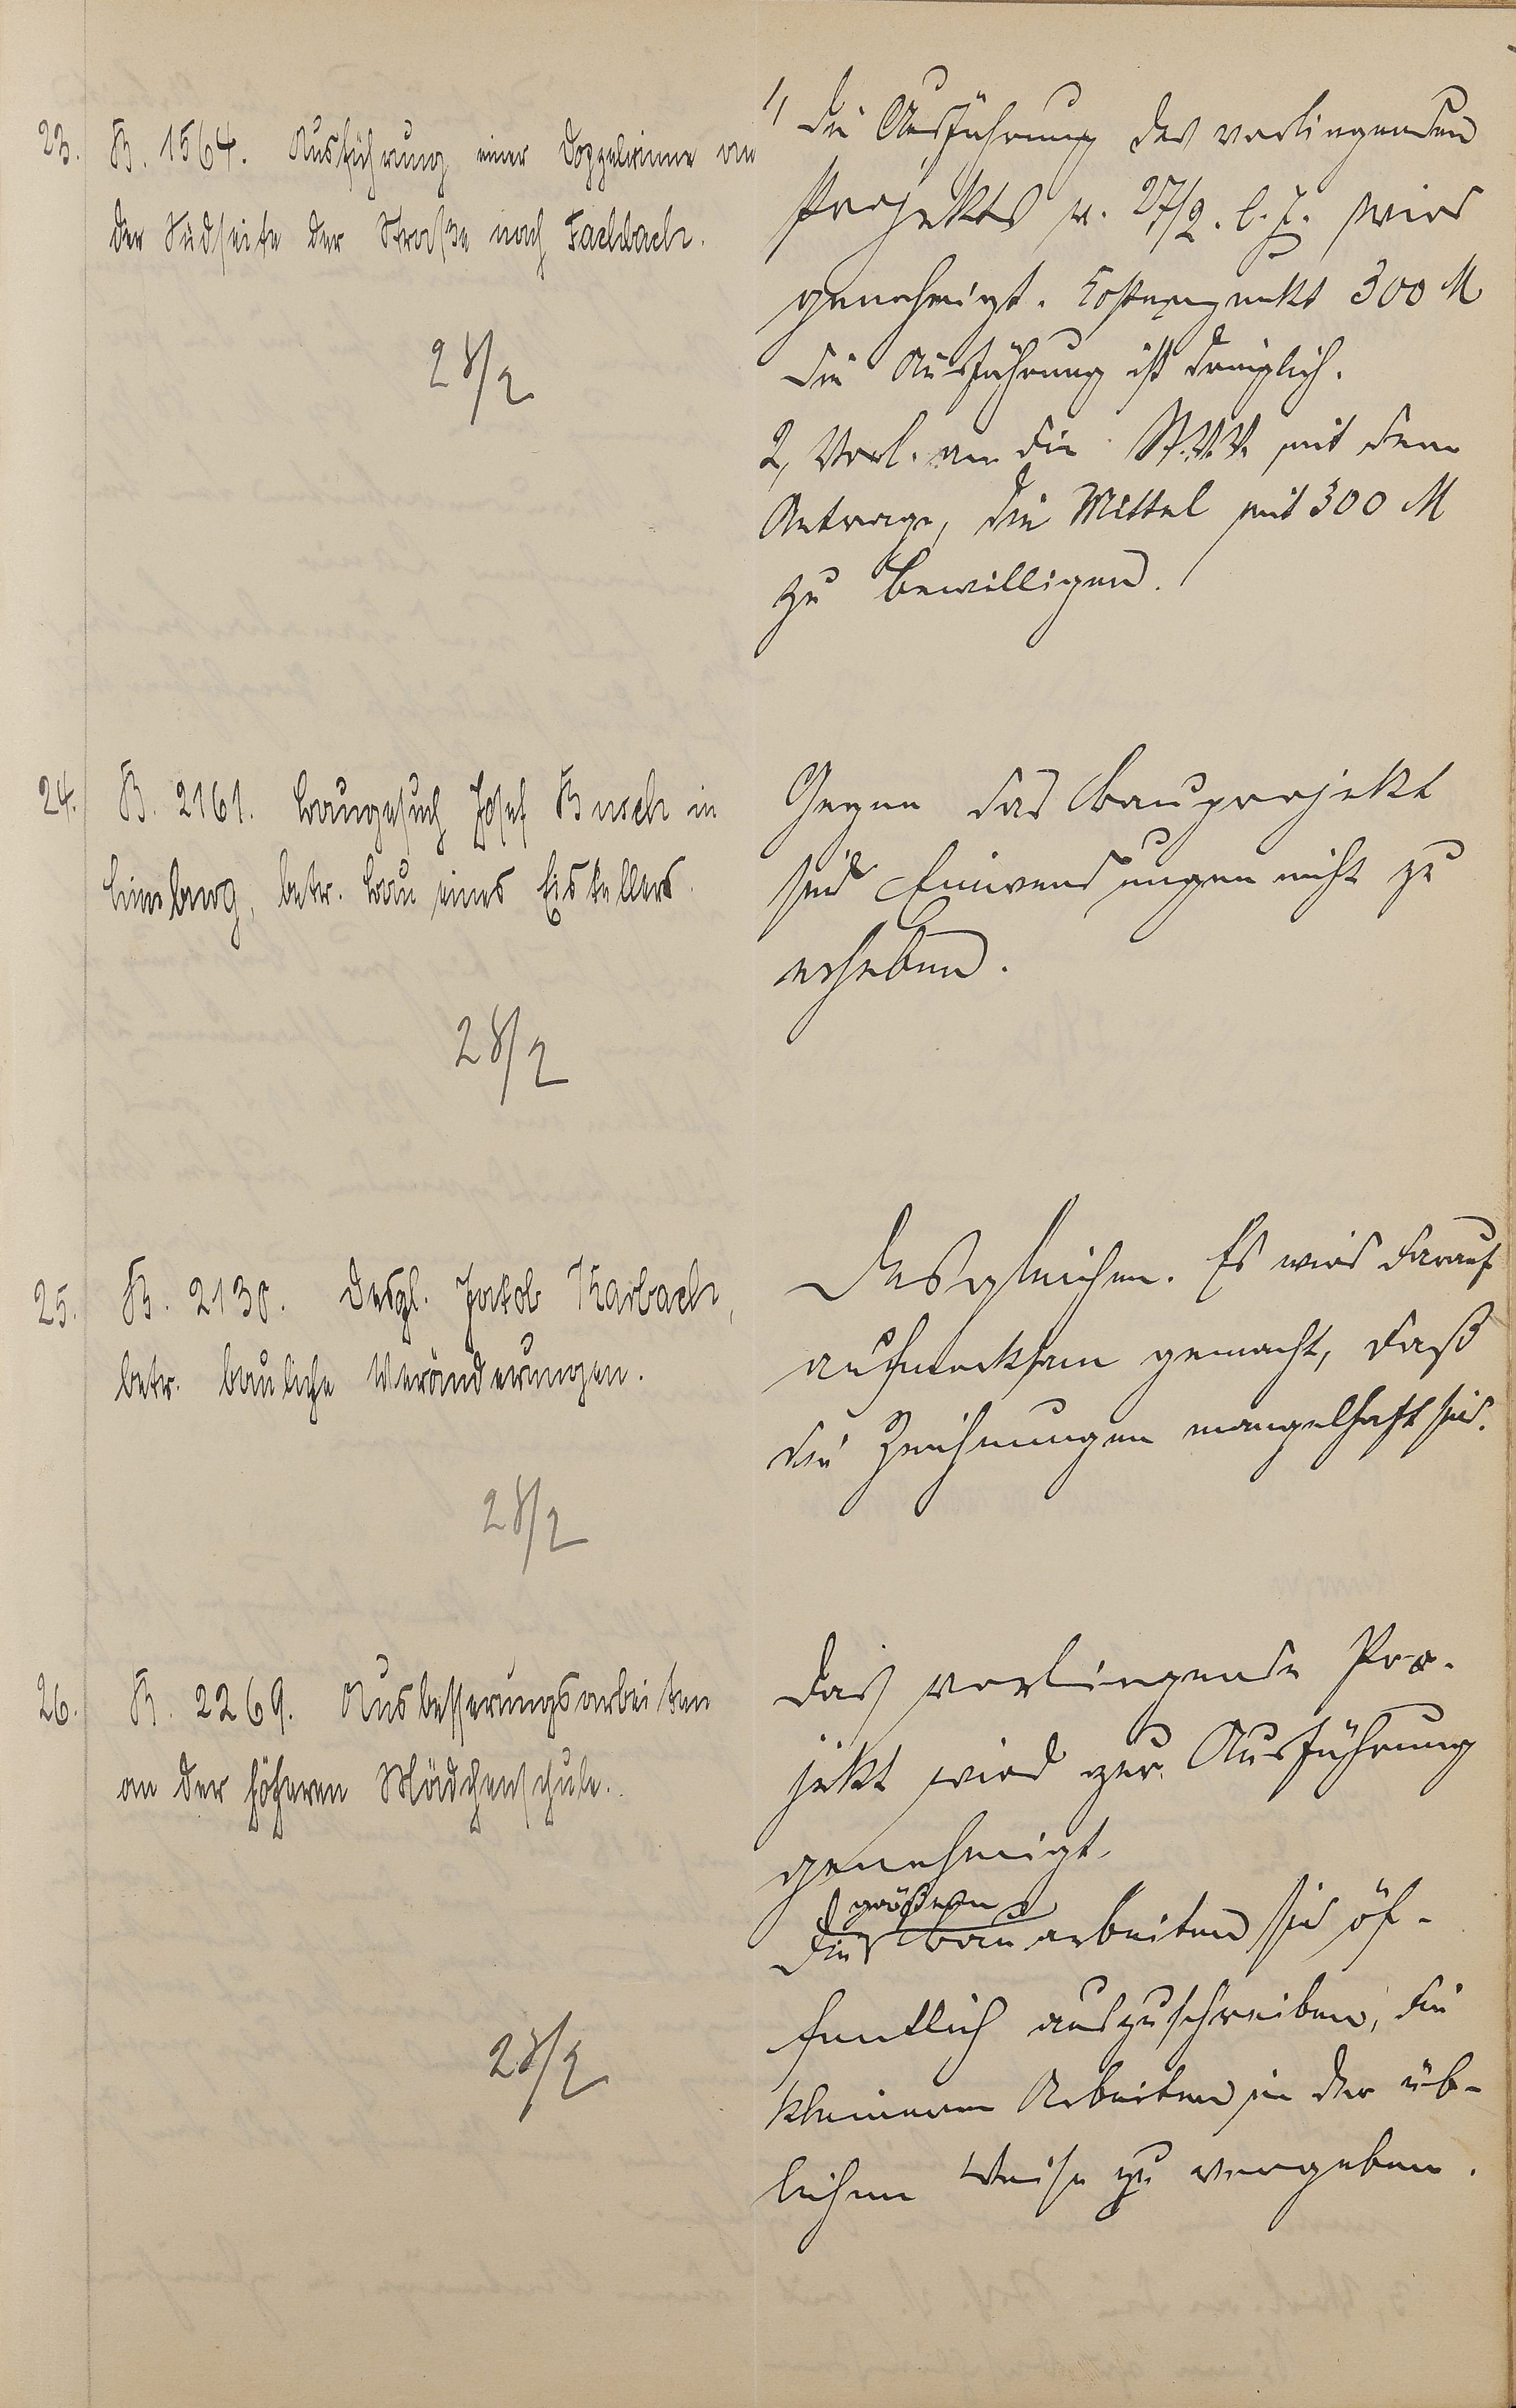 23. B. 1564. Ausführung einer Doppelrinne an
der Südseite der Straße nach Fachbach.
28/2
1, Die Ausführung des vorliegenden
Projekts v. 27/2. l. J. wird
genehmigt. Kostenpunkt 300 M
Die Ausführung ist dringlich.
2, Vorl. an die St.V.V. mit dem
Antrage, die Mittel mit 300 M
zu bewilligen.
24. B. 2161. Baugesuch Josef Busch in
Limburg, betr. Bau eines Eiskellers.
28/2
Gegen das Bauprojekt
sind Einwendungen nicht zu
erheben.
25. B. 2130. Desgl. Jakob Karbach,
betr. bauliche Veränderungen.
28/2
Desgleichen. Es wird darauf
aufmerksam gemacht, daß
die Zeichnungen mangelhaft sind.
26. B. 2269. Ausbesserungsarbeiten
an der höheren Mädchenschule.
28/2
Das vorliegende Pro-
jekt wird zur Ausführung
genehmigt.
größeren
Die Bauarbeiten sind öf-
fentlich auszuschreiben, die
kleineren Arbeiten in der üb-
lichen Weise zu vergeben.